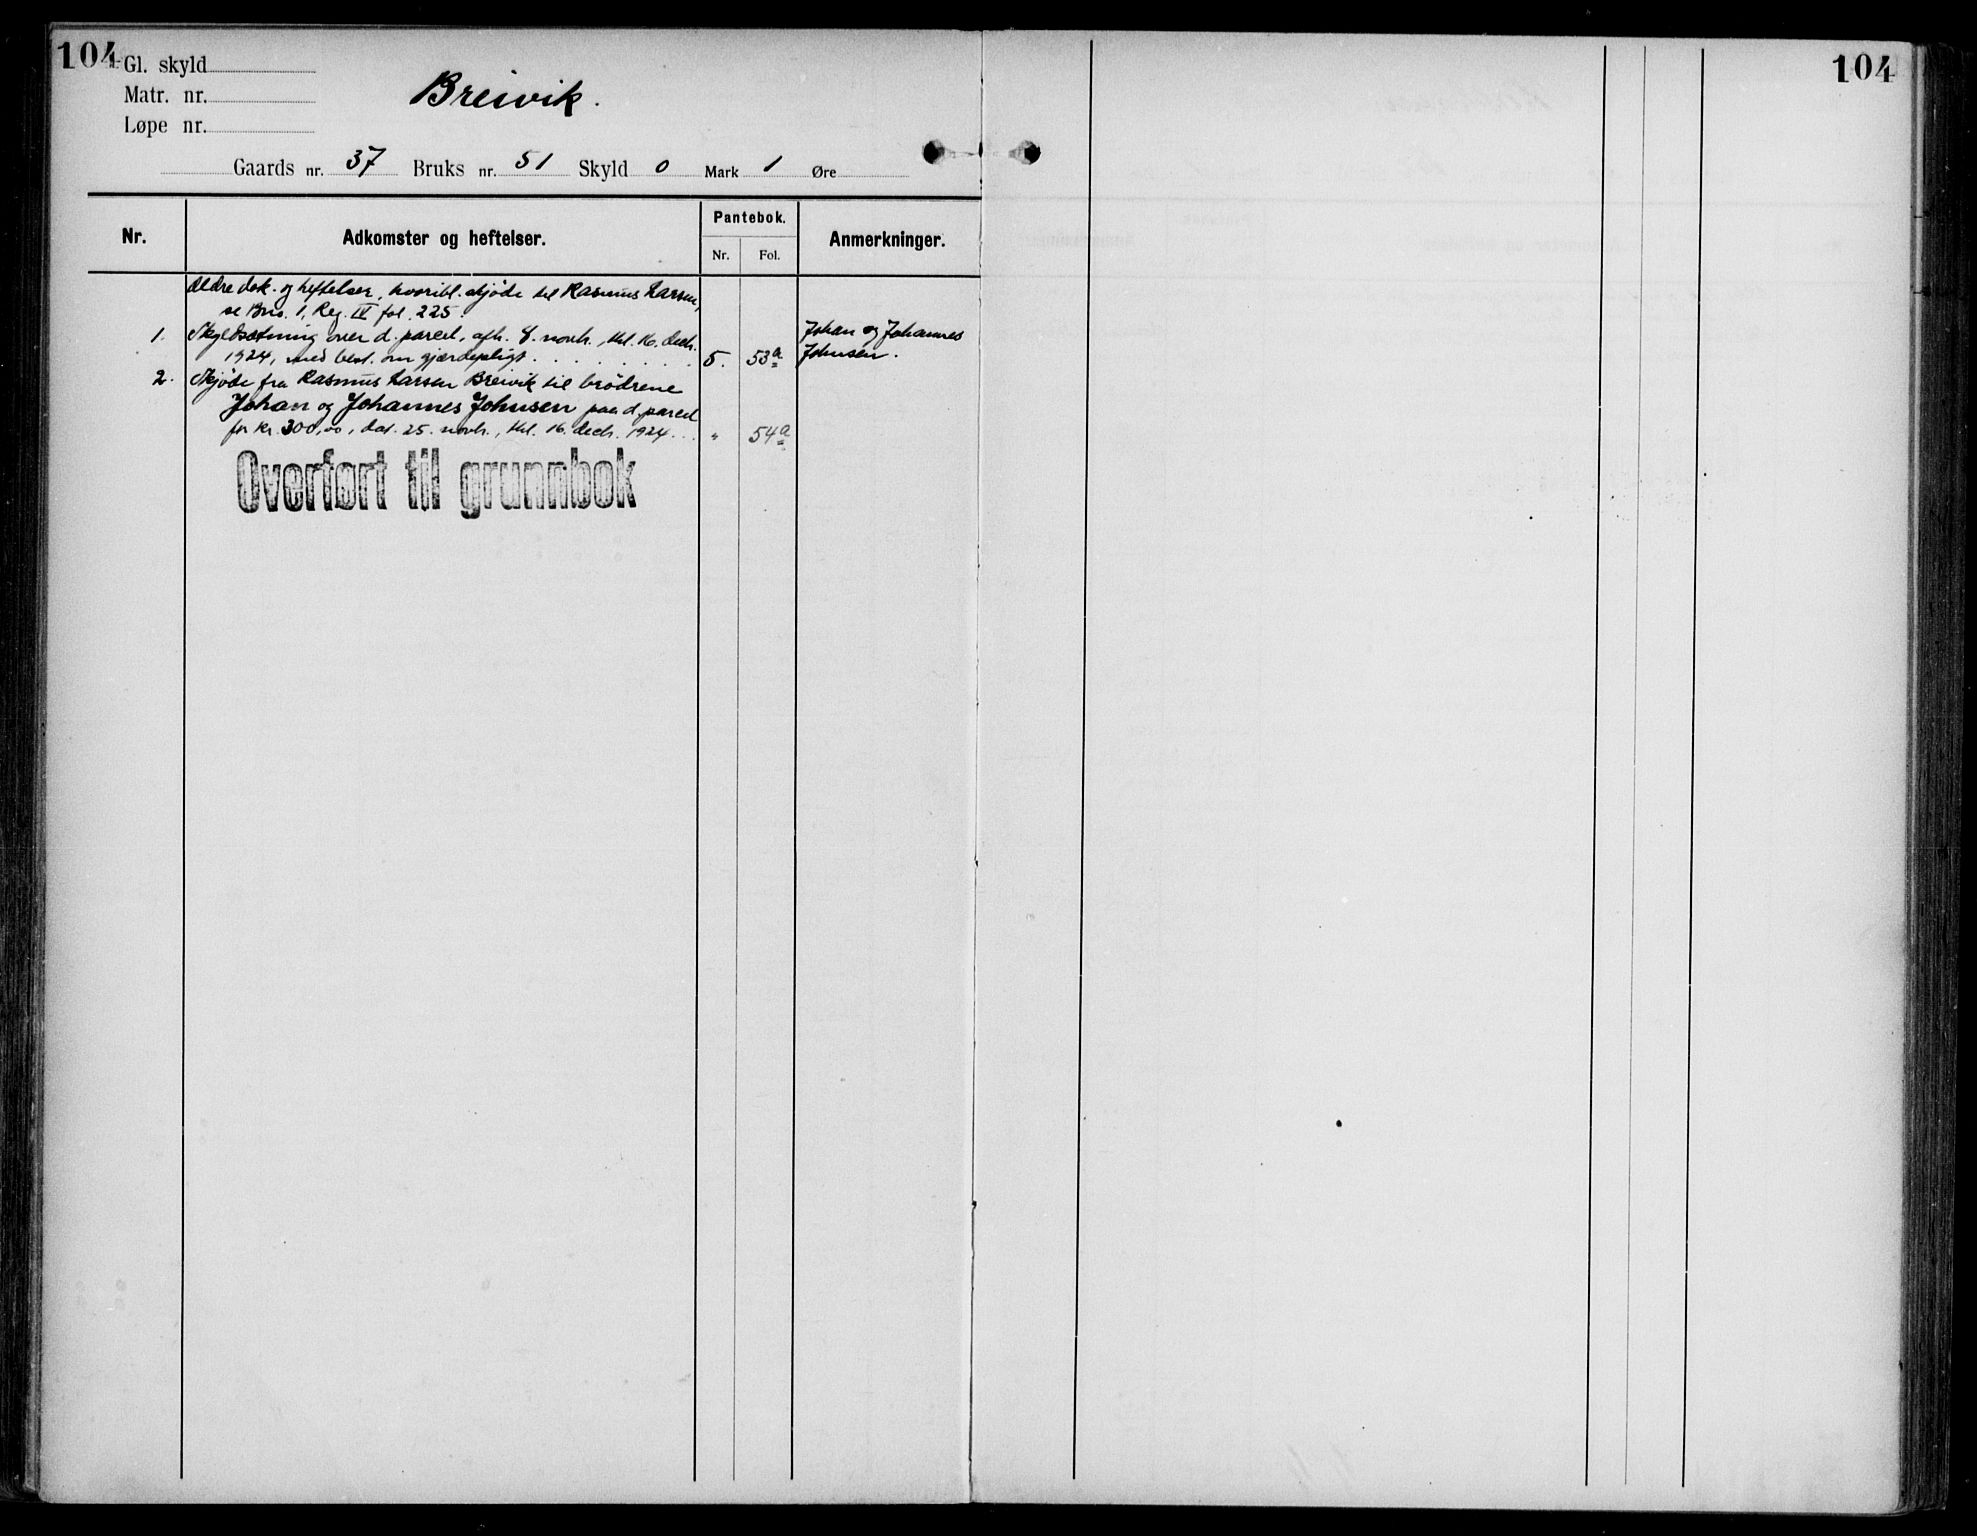 104
Gl. skyld
Matr. nr.
Løpe nr.
Breivik.
Gaards nr. 37 Bruks nr. 51 Skyld 0 Mark 1 Øre
Nr. Adkomster og heftelser. Pantebok. Anmerkninger.
Nr. Fol.
Ældre dok. og heftelser, hvoribl. skjøde til Rasmus Larsen,
se Brns. 1, Reg. IV fol. 225.
1. Skyldsætning over d. parcel, afh. 8. novbr., thl. 16. decbr.
1924, med best. om gjærdepligt . . . . . . 5. 53a
Johan og Johannes
Johnsen.
2. Skjøde fra Rasmus Larsen Breivik til brødrene
Johan og Johannes Johnsen paa d. parcel
for kr. 300,00, dat. 25. novbr., thl. 16. decbr. 1924 . . . " 54a
Overført til grunnbok
104